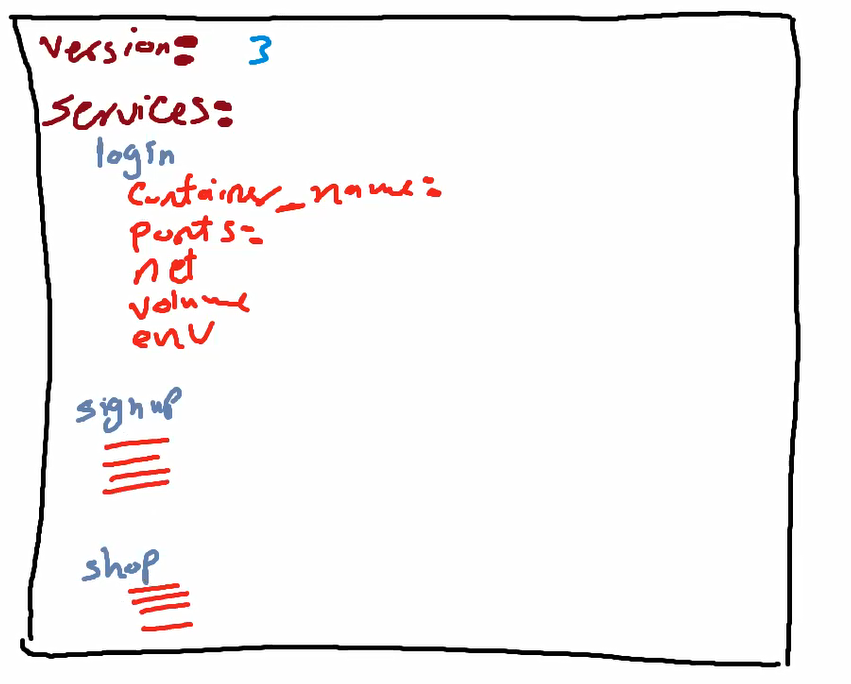 version: 3
services:
login
container_name:
ports:
net
volume
env
signup
shop